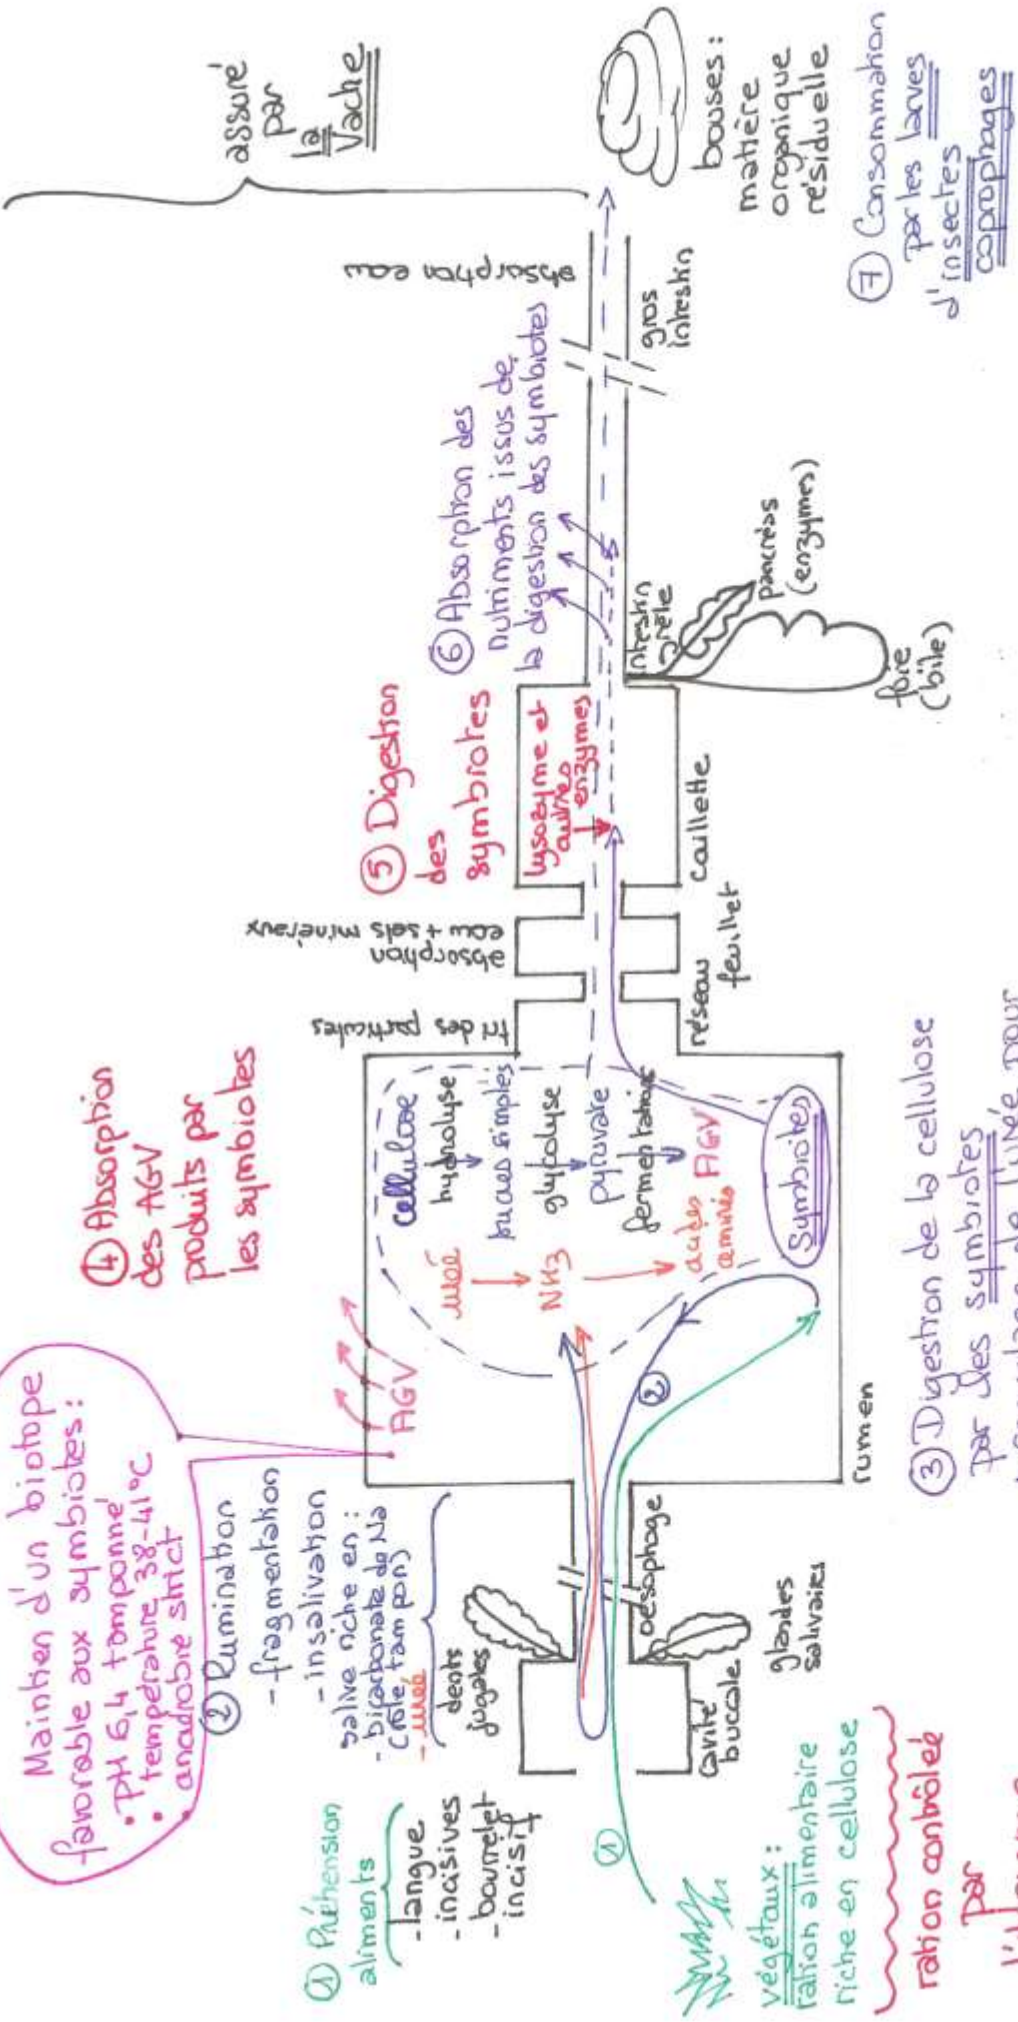 Maintien d'un biotope
favorable aux symbiotes :
• pH 6,4 tamponné
• température 38-41°C
• anaérobie strict
① Préhension
aliments
- langue
- incisives
- bourrelet
incisif
② Rumination
- fragmentation
- insalivation
salive riche en :
- bicarbonate de Na
(rôle tampon)
- urée
dents
jugales
①
végétaux :
ration alimentaire
riche en cellulose
ration contrôlée
par
cavité
buccale
oesophage
glandes
salivaires
④ Absorption
des AGV
produits par
les symbiotes
AGV
②
urée
NH3
acides
aminés
cellulose
hydrolyse
oses simples
glycolyse
pyruvate
fermentations
AGV
Symbiotes
rumen
③ Digestion de la cellulose
par des symbiotes
tri des particules
réseau
absorption
eau + sels minéraux
feuillet
⑤ Digestion
des
symbiotes
lysozyme et
autres
enzymes
caillette
⑥ Absorption des
nutriments issus de
la digestion des symbiotes
intestin
grêle
foie
(bile)
pancréas
(enzymes)
absorption eau
gros
intestin
assuré
par
la
Vache
bouses :
matière
organique
résiduelle
⑦ Consommation
par les larves
d'insectes
coprophages